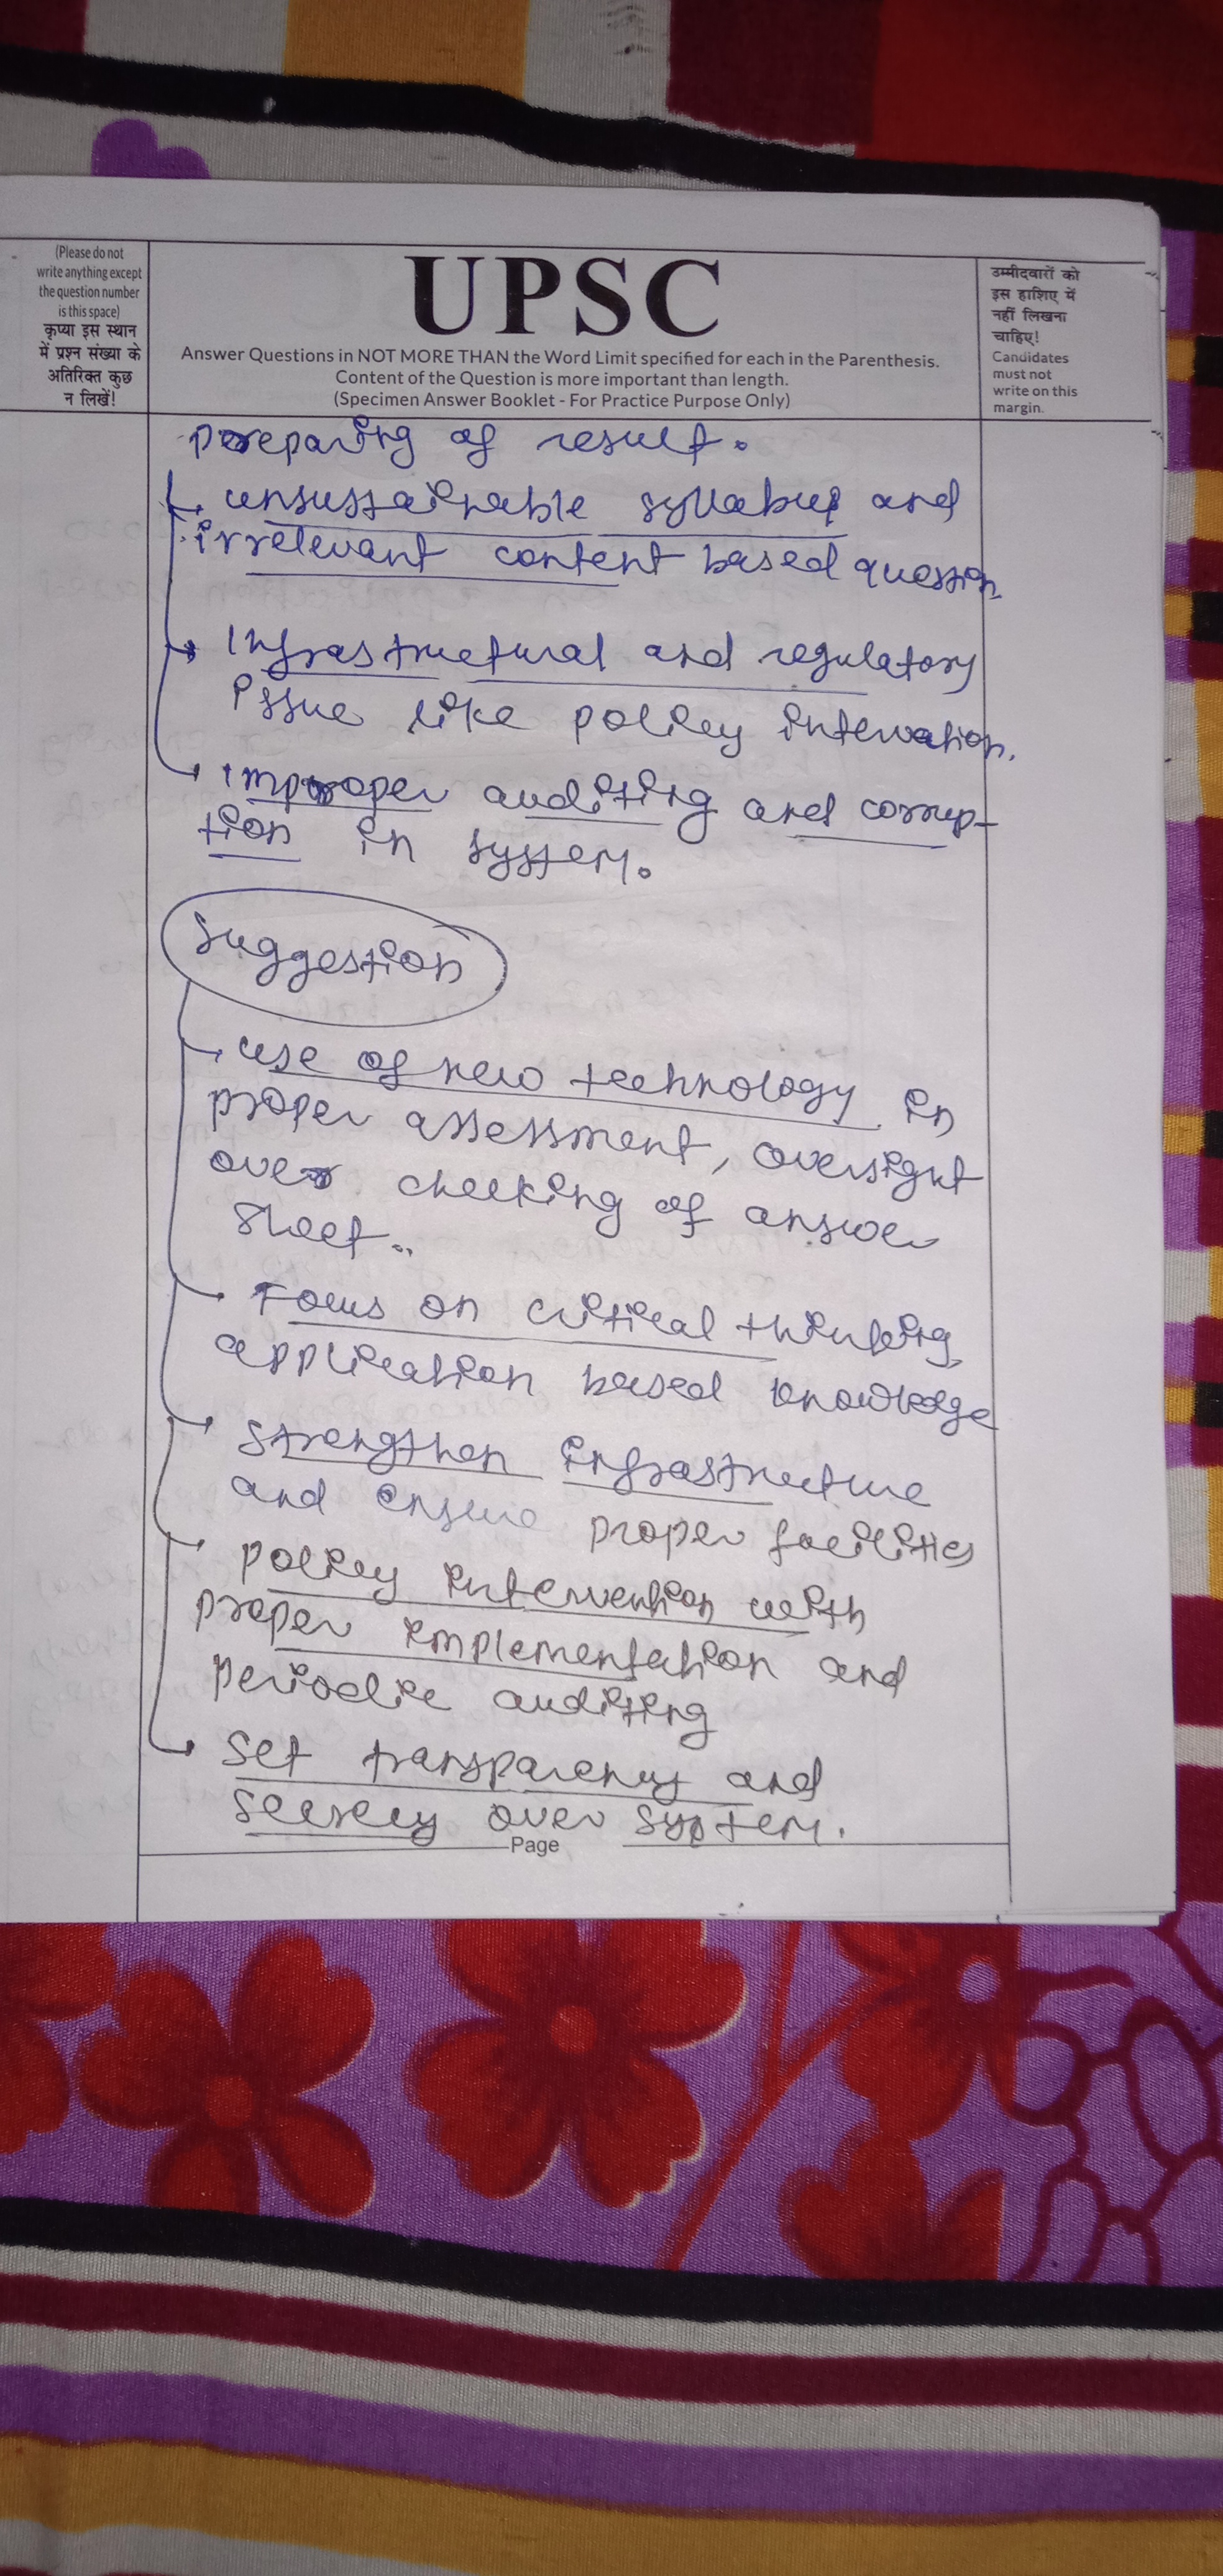 (Please do not
write anything except
the question number
is this space)
कृप्या इस स्थान
में प्रश्न संख्या के
अतिरिक्त कुछ
न लिखें!
UPSC
Answer Questions in NOT MORE THAN the Word Limit specified for each in the Parenthesis.
Content of the Question is more important than length.
(Specimen Answer Booklet - For Practice Purpose Only)
उम्मीदवारों को
इस हाशिए में
नहीं लिखना
चाहिए!
Candidates
must not
write on this
margin.
preparing of result.
unsustainable syllabus and
irrelevant content based question.
Infrastructural and regulatory
issue like policy
improper auditing and corrup-
tion in system.
Suggestion
use of new technology in
proper assessment, oversight
over checking of answer
sheet..
Focus on critical thinking,
application based knowledge
Strengthen infrastructure
and ensure proper facilities
policy intervention with
proper implementation and
periodic auditing
Set transparency and
over system.
Page